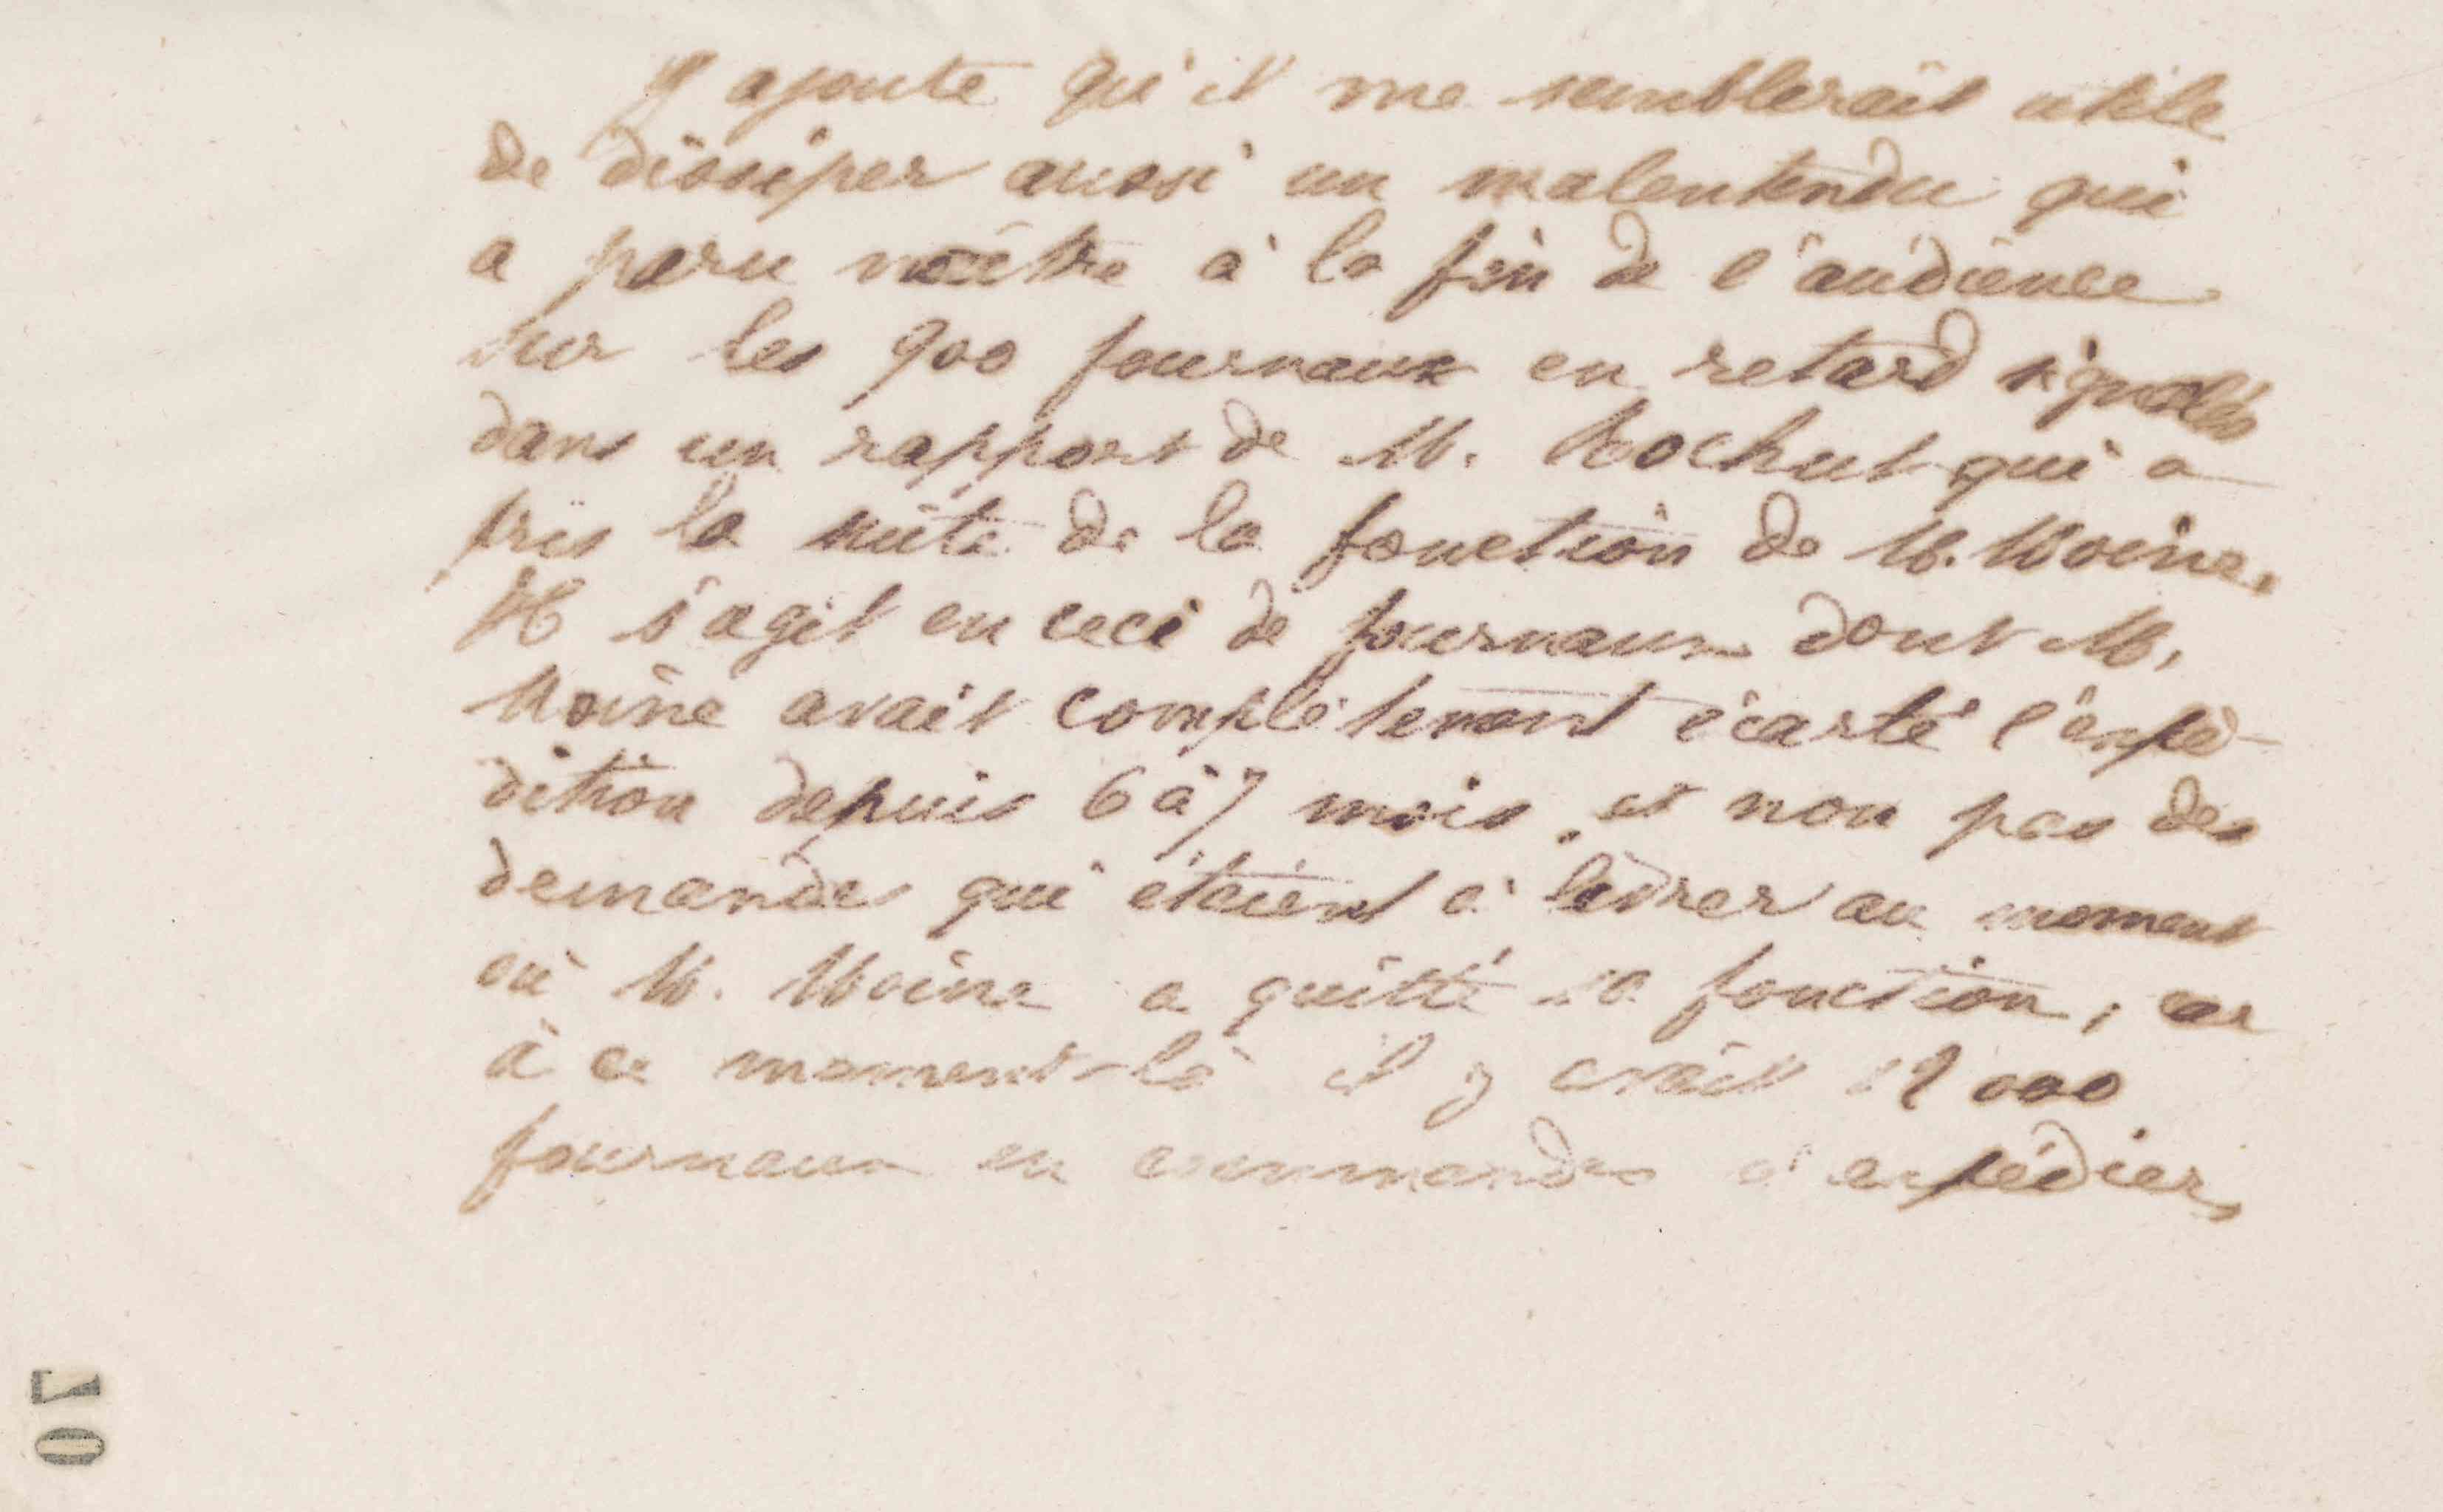 J'ajoute qu'il me semblerait utile
de dissiper aussi un malentendu qui
a paru naître à la fin de l'audience
sur les 900 fourneaux en retard signalés
dans un rapport de M. Rochut qui a
pris la suite de la fonction de M. Moine.
Il s'agit en ceci de fourneaux dont M.
Moine avait complètement écarté l'expé-
dition depuis 6 à 7 mois, et non pas des
demandes qui étaient à livrer au moment
où M. Moine a quitté sa fonction; car
à ce moment-là il y avait 000
fourneaux en commandes à expédier,
70